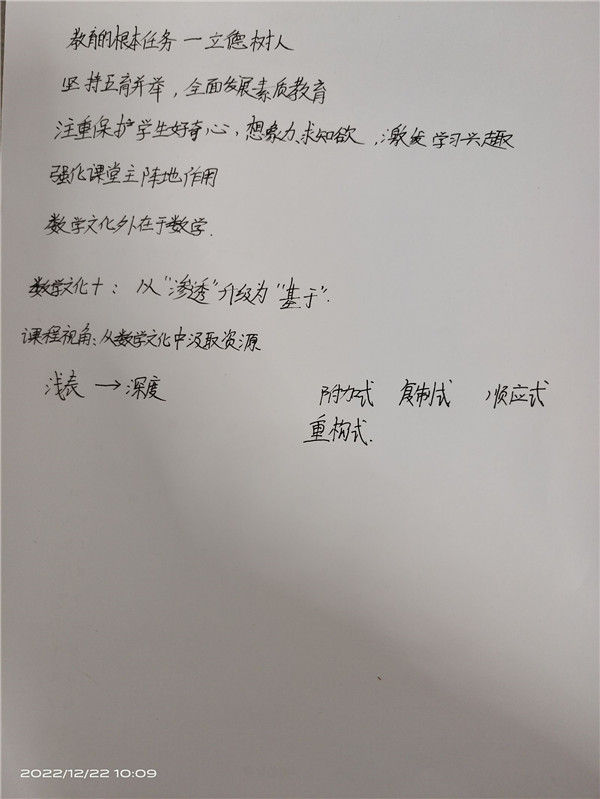 教育的根本任务—立德树人
坚持五育并举，全面发展素质教育
注重保护学生好奇心，想象力、求知欲，激发学习兴趣
强化课堂主阵地作用
数学文化外在于数学.
数学文化十：从“渗透”升级为“基于”.
课程视角：从数学文化中汲取资源
浅表→深度 附加式 复制式 顺应式
重构式.
2022/12/22 10:09